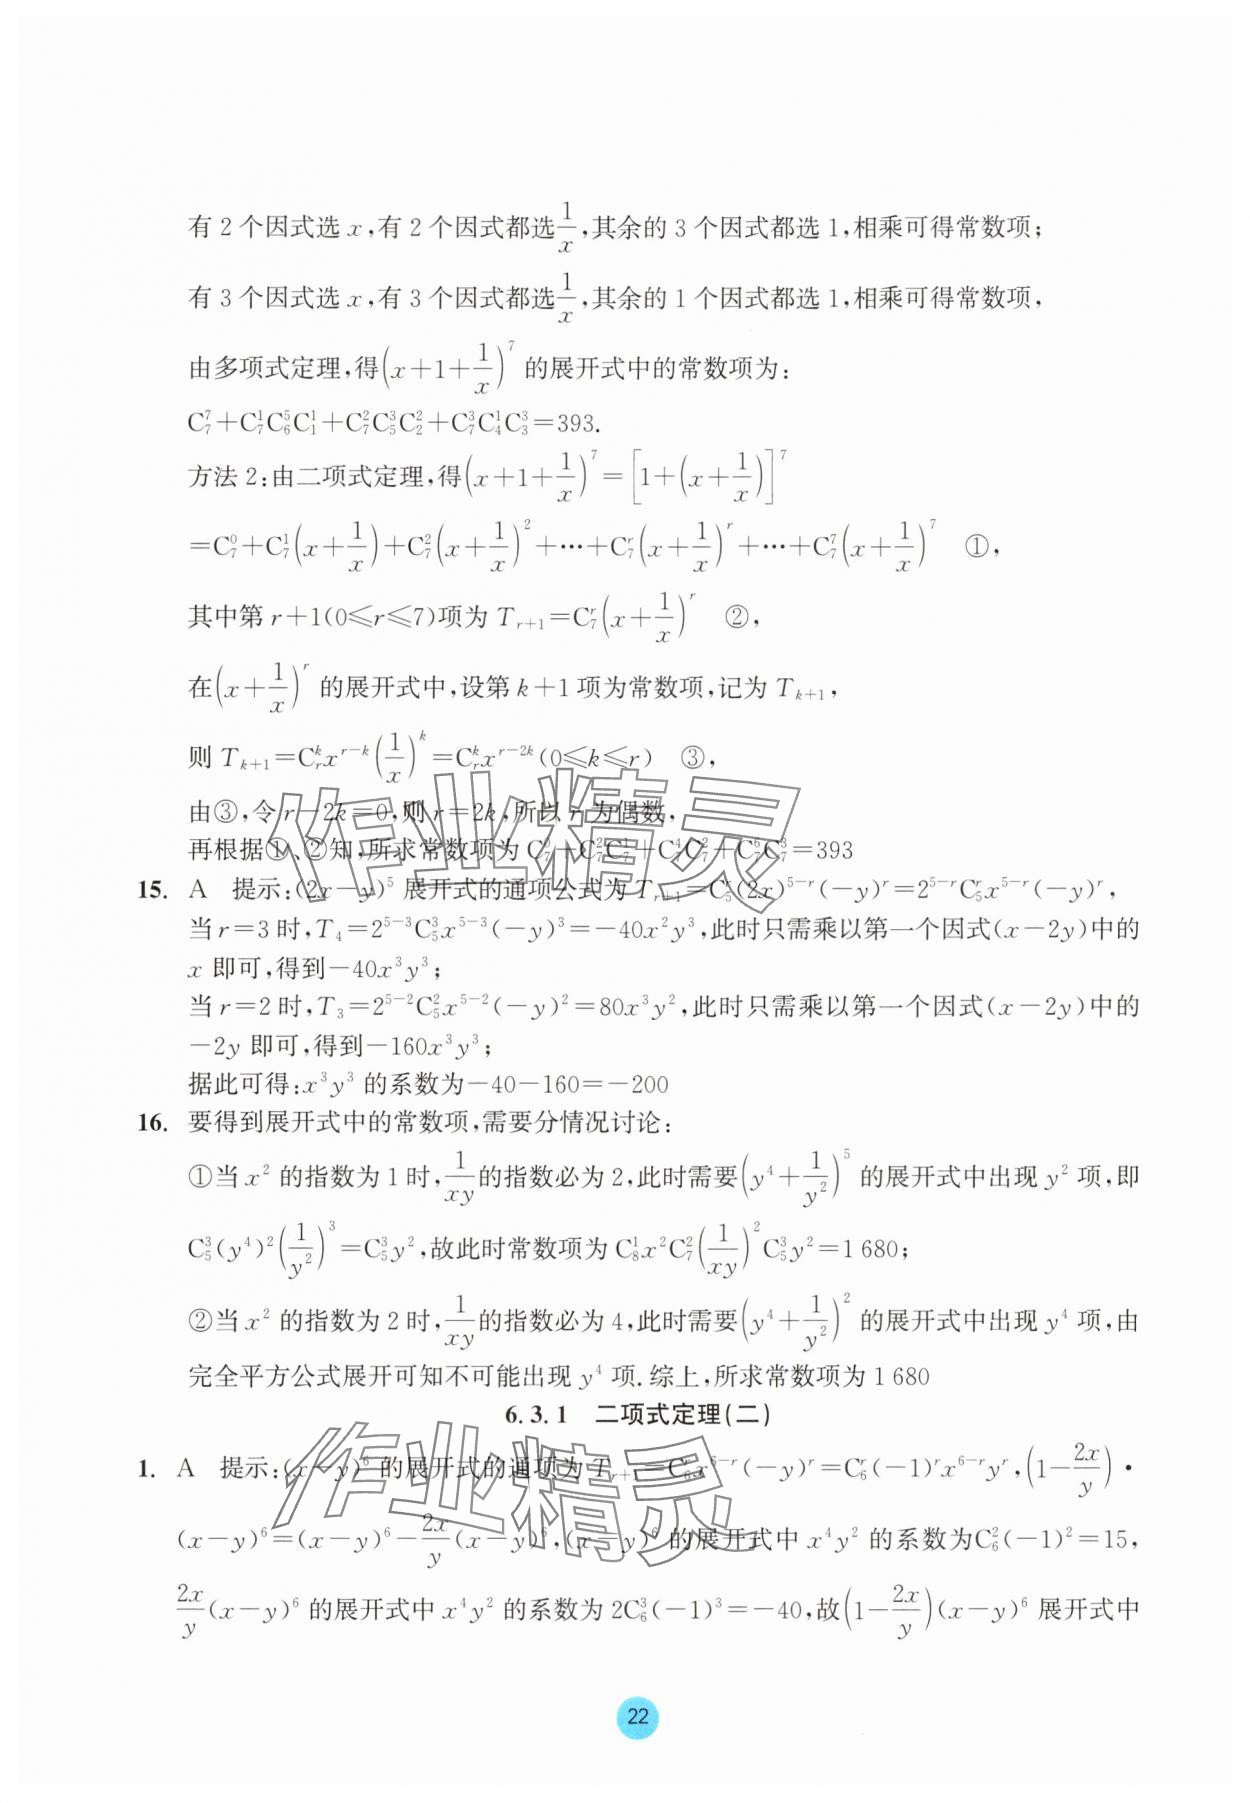 有 2 个因式选 x,有 2 个因式都选 1/x,其余的 3 个因式都选 1,相乘可得常数项;
有 3 个因式选 x,有 3 个因式都选 1/x,其余的 1 个因式都选 1,相乘可得常数项,
由多项式定理,得(x+1+1/x)^7 的展开式中的常数项为:
C_7^7+C_7^1C_6^5C_1^1+C_7^2C_5^3C_2^2+C_7^3C_4^1C_3^3=393.
方法 2:由二项式定理,得(x+1+1/x)^7=[1+(x+1/x)]^7
=C_7^0+C_7^1(x+1/x)+C_7^2(x+1/x)^2+…+C_7^r(x+1/x)^r+…+C_7^7(x+1/x)^7 ①,
其中第 r+1(0≤r≤7)项为 T_{r+1}=C_7^r(x+1/x)^r ②,
在(x+1/x)^r 的展开式中,设第 k+1 项为常数项,记为 T_{k+1},
则 T_{k+1}=C_r^k x^{r-k}(1/x)^k=C_r^k x^{r-2k}(0≤k≤r) ③,
由③,令 r-2k=0,则 r=2k,所以 r 为偶数,
再根据①、②知,所求常数项为 C_7^0+C_7^2C_2^1+C_7^4C_4^2+C_7^6C_6^3=393
15. A 提示:(2x-y)^5 展开式的通项公式为 T_{r+1}=C_5^r(2x)^{5-r}(-y)^r=2^{5-r}C_5^r x^{5-r}(-y)^r,
当 r=3 时,T_4=2^{5-3}C_5^3x^{5-3}(-y)^3=-40x^2y^3,此时只需乘以第一个因式(x-2y)中的
x 即可,得到-40x^3y^3;
当 r=2 时,T_3=2^{5-2}C_5^2x^{5-2}(-y)^2=80x^3y^2,此时只需乘以第一个因式(x-2y)中的
-2y 即可,得到-160x^3y^3;
据此可得:x^3y^3 的系数为-40-160=-200
16. 要得到展开式中的常数项,需要分情况讨论:
①当 x^2 的指数为 1 时,1/xy 的指数必为 2,此时需要(y^4+1/y^2)^5 的展开式中出现 y^2 项,即
C_5^3(y^4)^2(1/y^2)^3=C_5^3y^2,故此时常数项为 C_8^1x^2C_7^2(1/xy)^2C_5^3y^2=1 680;
②当 x^2 的指数为 2 时,1/xy 的指数必为 4,此时需要(y^4+1/y^2)^2 的展开式中出现 y^4 项,由
完全平方公式展开可知不可能出现 y^4 项.综上,所求常数项为 1 680
6.3.1 二项式定理(二)
1. A 提示:(x-y)^6 的展开式的通项为 T_{r+1}=C_6^r x^{6-r}(-y)^r=C_6^r(-1)^r x^{6-r}y^r,(1-2x/y)·
(x-y)^6=(x-y)^6-2x/y(x-y)^6,(x-y)^6 的展开式中 x^4y^2 的系数为C_6^2(-1)^2=15,
2x/y(x-y)^6 的展开式中 x^4y^2 的系数为 2C_6^3(-1)^3=-40,故(1-2x/y)(x-y)^6 展开式中
22
作业精灵
作业精灵